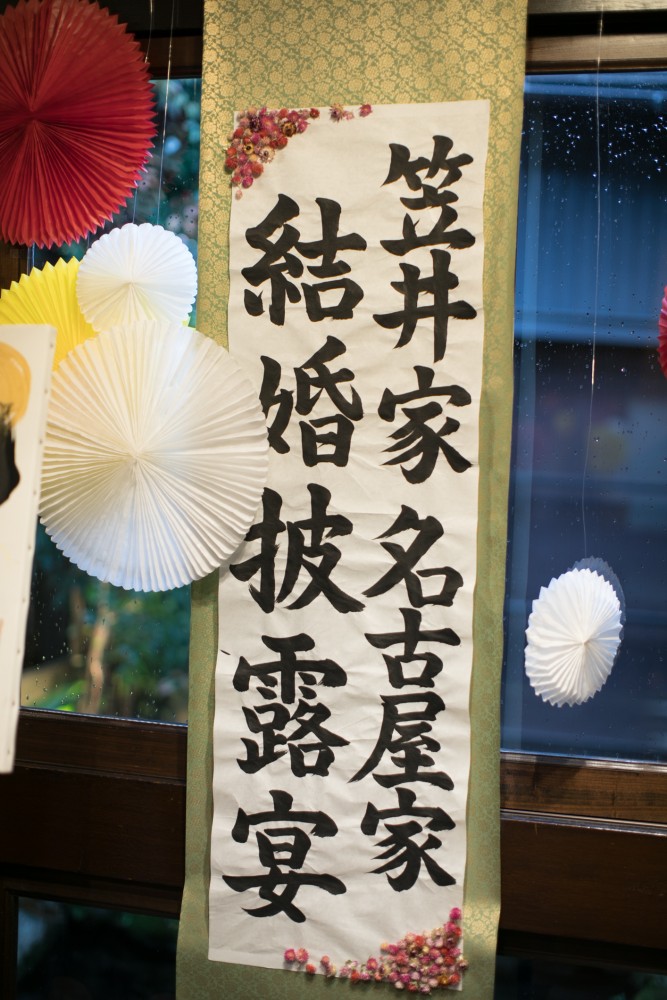 笠井家 名古屋家
結婚披露宴